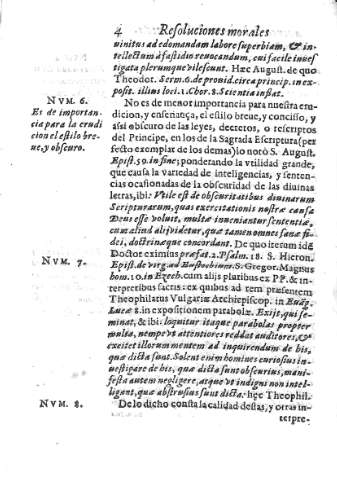 4 Resoluciones morales
uinitus ad edomandam labore superbiam, & in-
tellectum à fastidio reuocandum, cui facile inues-
tigata plerumque vilescunt. Hæc August. de quo
Theodor. Serm. 6. de prouid. circa princip. in ex-
posit. illius loci 1. Chor. 8. Scientia inflat.
NVM. 6.
Es de importan-
cia para la erudi
cion el estilo bre
ue, y obscuro.
No es de menor importancia para nuestra eru-
dicion, y enseñança, el estilo breue, y conciso, y
assi obscuro de las leyes, decretos, o rescriptos
del Principe, en los de la Sagrada Escritura (per-
fecto exemplar de los demas) lo notò S. August.
Epist. 59. in fine; ponderando la vtilidad grande,
que causa la variedad de inteligencias, y senten-
cias ocasionadas de la obscuridad de las diuinas
letras, ibi: Vtile est de obscuritatibus diuinarum
Scripturarum, quas exercitationis nostræ causa
Deus esse voluit, multæ inueniantur sententiæ,
cum aliud alij videtur, quæ tamen omnes sanæ fi-
dei, doctrinæque concordant. De quo iterum idẽ
NVM. 7.
Doctor eximius præfat. 2. Psalm. 18. S. Hieron.
Epist. de virg. ad Eustochium. S. Gregor. Magnus
hom. 10. in Ezech. cum alijs pluribus ex PP. & in-
terpretibus sacris: ex quibus ad rem præsentem
Theophilatus Vulgariæ Archiepiscop. in Euãg.
Lucæ 8. in expositionem parabolæ. Exijt, qui se-
minat, & ibi: loquitur itaque parabolas propter
multa, nempe vt attentiores reddat auditores, &
exciset illorum mentem ad inquirendum de his,
quæ dicta sunt. Solent enim homines curiosius in-
uestigare de his, quæ dicta sunt obscurius, mani-
festa autem negligere, atque vt indigni non intel-
ligant, quæ abstrusius sunt dicta: hęc Theophil.
NVM. 8.
De lo dicho consta la calidad destas, y otras in-
terpre-